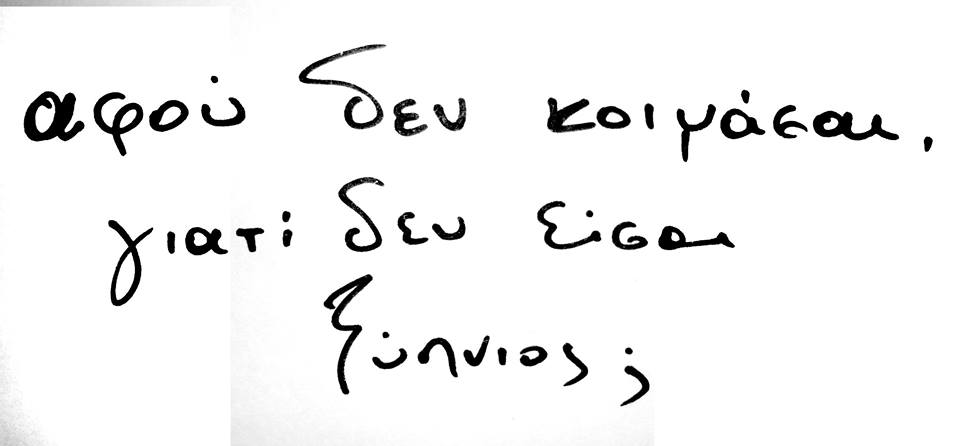 αφού δεν κοιμάσαι,
γιατί δεν είσαι
ξύπνιος;